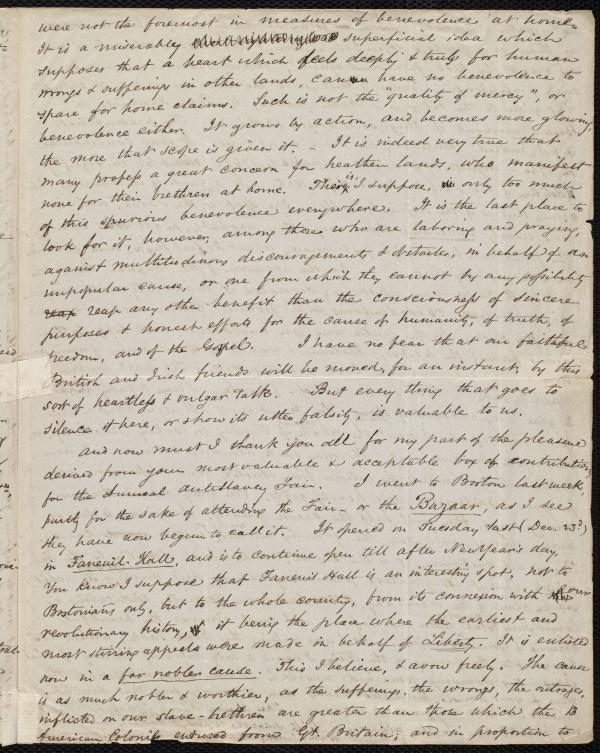 were not the foremost in measures of benevolence at home.
It is a miserably superficial idea which
supposes that a heart which feels deeply & truly for human
wrongs & sufferings in other lands, can have no benevolence to
spare for home claims. Such is not the "quality of mercy", or
benevolence either. It grows by action, and becomes more glowing,
the more that scope is given it. - It is indeed very true that
many profess a great concern for heathen lands, who manifest
none for their brethren at home. There is, I suppose, only too much
of this spurious benevolence everywhere. It is the last place to
look for it, however, among those who are laboring and praying,
against multitudinous discouragements & obstacles, in behalf of an
unpopular cause, or one from which they cannot by any possibility
reap reap any other benefit than the consciousness of sincere
purposes & honest efforts for the cause of humanity, of truth, of
freedom, and of the Gospel. I have no fear that our faithful
British and Irish friends will be moved, for an instant, by this
sort of heartless & vulgar talk. But every thing that goes to
silence it here, or show its utter falsity, is valuable to us.
And now must I thank you all for my part of the pleasure
derived from your most valuable & acceptable box of contributions
for the Annual Antislavery Fair. I went to Boston last week,
partly for the sake of attending the Fair - or the Bazaar, as I see
they have now begun to call it. It opened on Tuesday last (Dec. 23d)
in Faneuil-Hall, and is to continue open till after New Year's day.
You know I suppose that Faneuil Hall is an interesting spot, not to
Bostonians only, but to the whole country, from its connexion with our
revolutionary history, it being the place where the earliest and
most stirring appeals were made in behalf of Liberty. It is enlisted
now in a far nobler cause. This I believe, & avow freely. The cause
is as much nobler & worthier, as the sufferings, the wrongs, the outrages,
inflicted on our slave-brethren are greater than those which the 13
American Colonies endured from Gt. Britain; and in proportion to